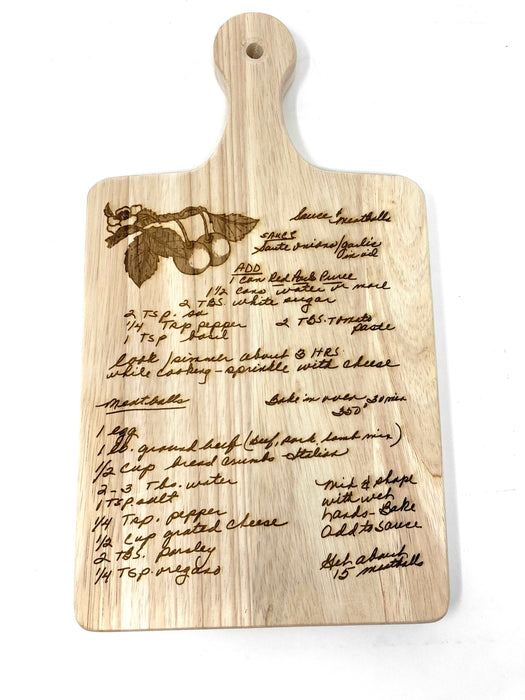 Sauce & Meatballs
SAUCE
Saute onions/garlic
in oil
ADD
1 can Red Pack Puree
1 1/2 cans water or more
2 TBS. white sugar
2 Tsp. sa
1/4 Tsp pepper 2 TBS. Tomato
1 Tsp basil Paste
Cook/simmer about 3 HRS.
while cooking - sprinkle with cheese
Meatballs
Bake in oven 30 min
350°
1 egg
1 lb. ground beef (Beef, Pork, Lamb mix)
1/2 cup bread crumbs Italian
2-3 Tbs. water
1 Tsp salt
1/4 Tsp. pepper
1/2 cup grated cheese
2 TBS. Parsley
1/4 Tsp. oregano
Mix & shape
with wet
hands - Bake
add to sauce
Get about
15 meatballs